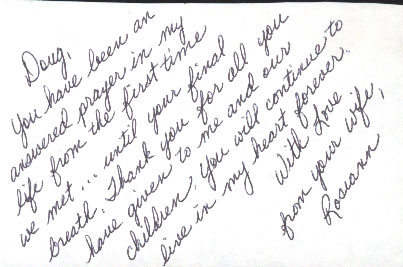 Doug,
You have been an
answered prayer in my
life from the first time
we met... until your final
breath. Thank you for all you
have given to me and our
children. You will continue to
live in my heart forever.
With Love
from your wife,
Rosiann